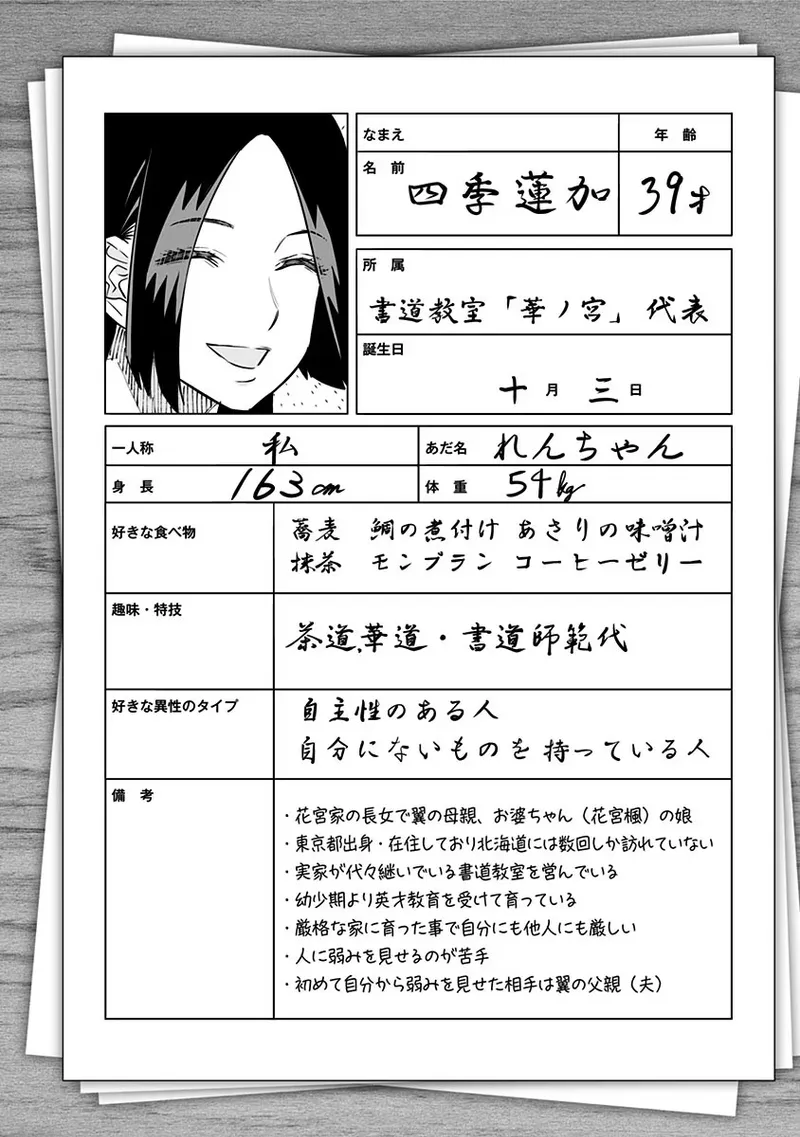 なまえ
年 齢
名 前
四季蓮加
39才
所 属
書道教室「華ノ宮」代表
誕生日
十月三日
一人称
私
あだ名
れんちゃん
身 長
163cm
体 重
54kg
好きな食べ物
蕎麦 鯛の煮付け あさりの味噌汁
抹茶 モンブラン コーヒーゼリー
趣味・特技
茶道,華道・書道師範代
好きな異性のタイプ
自主性のある人
自分にないものを持っている人
備 考
・花宮家の長女で翼の母親、お婆ちゃん（花宮楓）の娘
・東京都出身・在住しており北海道には数回しか訪れていない
・実家が代々継いでいる書道教室を営んでいる
・幼少期より英才教育を受けて育っている
・厳格な家に育った事で自分にも他人にも厳しい
・人に弱みを見せるのが苦手
・初めて自分から弱みを見せた相手は翼の父親（夫）